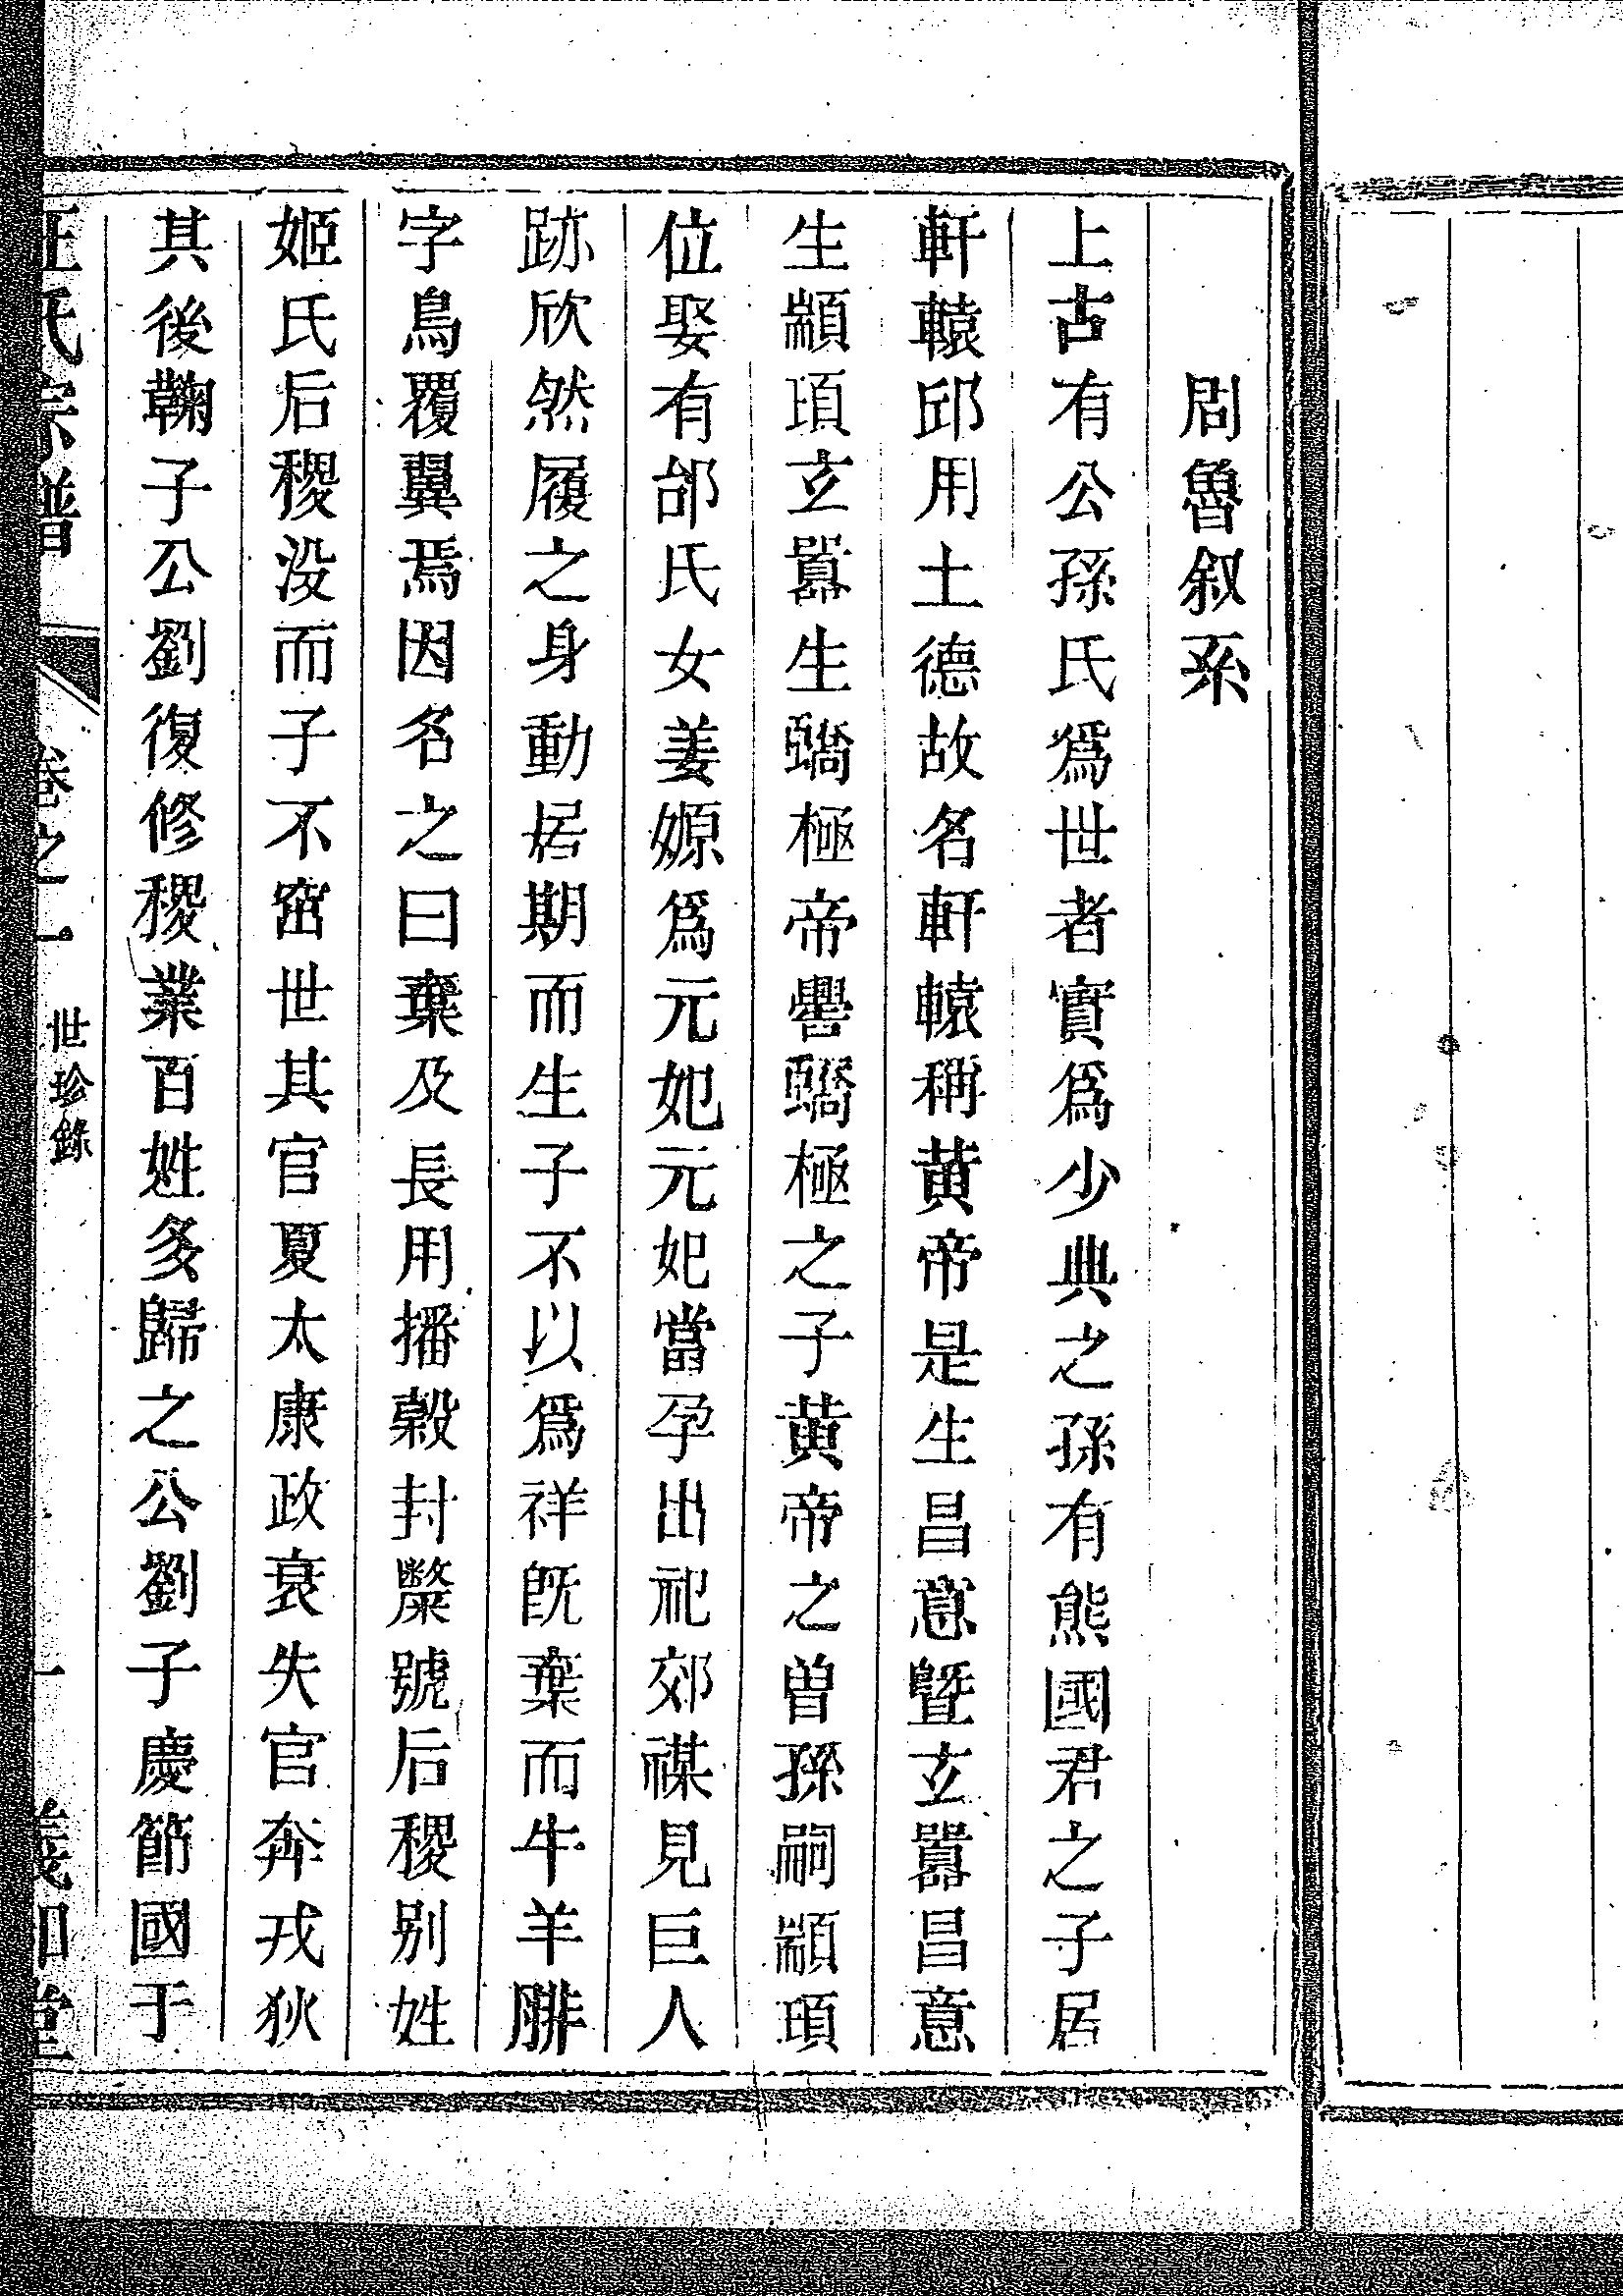 周魯叙系
上古有公孫氏爲世者實爲少典之孫有熊國君之子居
軒轅邱用土德故名軒轅稱黃帝是生昌意曁玄囂昌意
生顓頊玄囂生蟜極帝嚳蟜極之子黃帝之曾孫嗣顓頊
位娶有邰氏女姜嫄爲元妃元妃當孕出祀郊禖見巨人
跡欣然履之身動居期而生子不以爲祥旣棄而牛羊腓
字鳥覆翼焉因名之曰棄及長用播穀封斄號后稷别姓
姬氏后稷没而子不窋世其官夏太康政衰失官奔戎狄
其後鞠子公劉復修稷業百姓多歸之公劉子慶節國于
汪氏宗譜 卷之一 世珍錄 一 義和堂